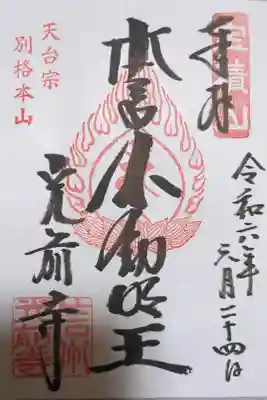 奉拝
宝積山
令和六年
六月二十四日
本尊不動明王
光前寺
天台宗
別格本山